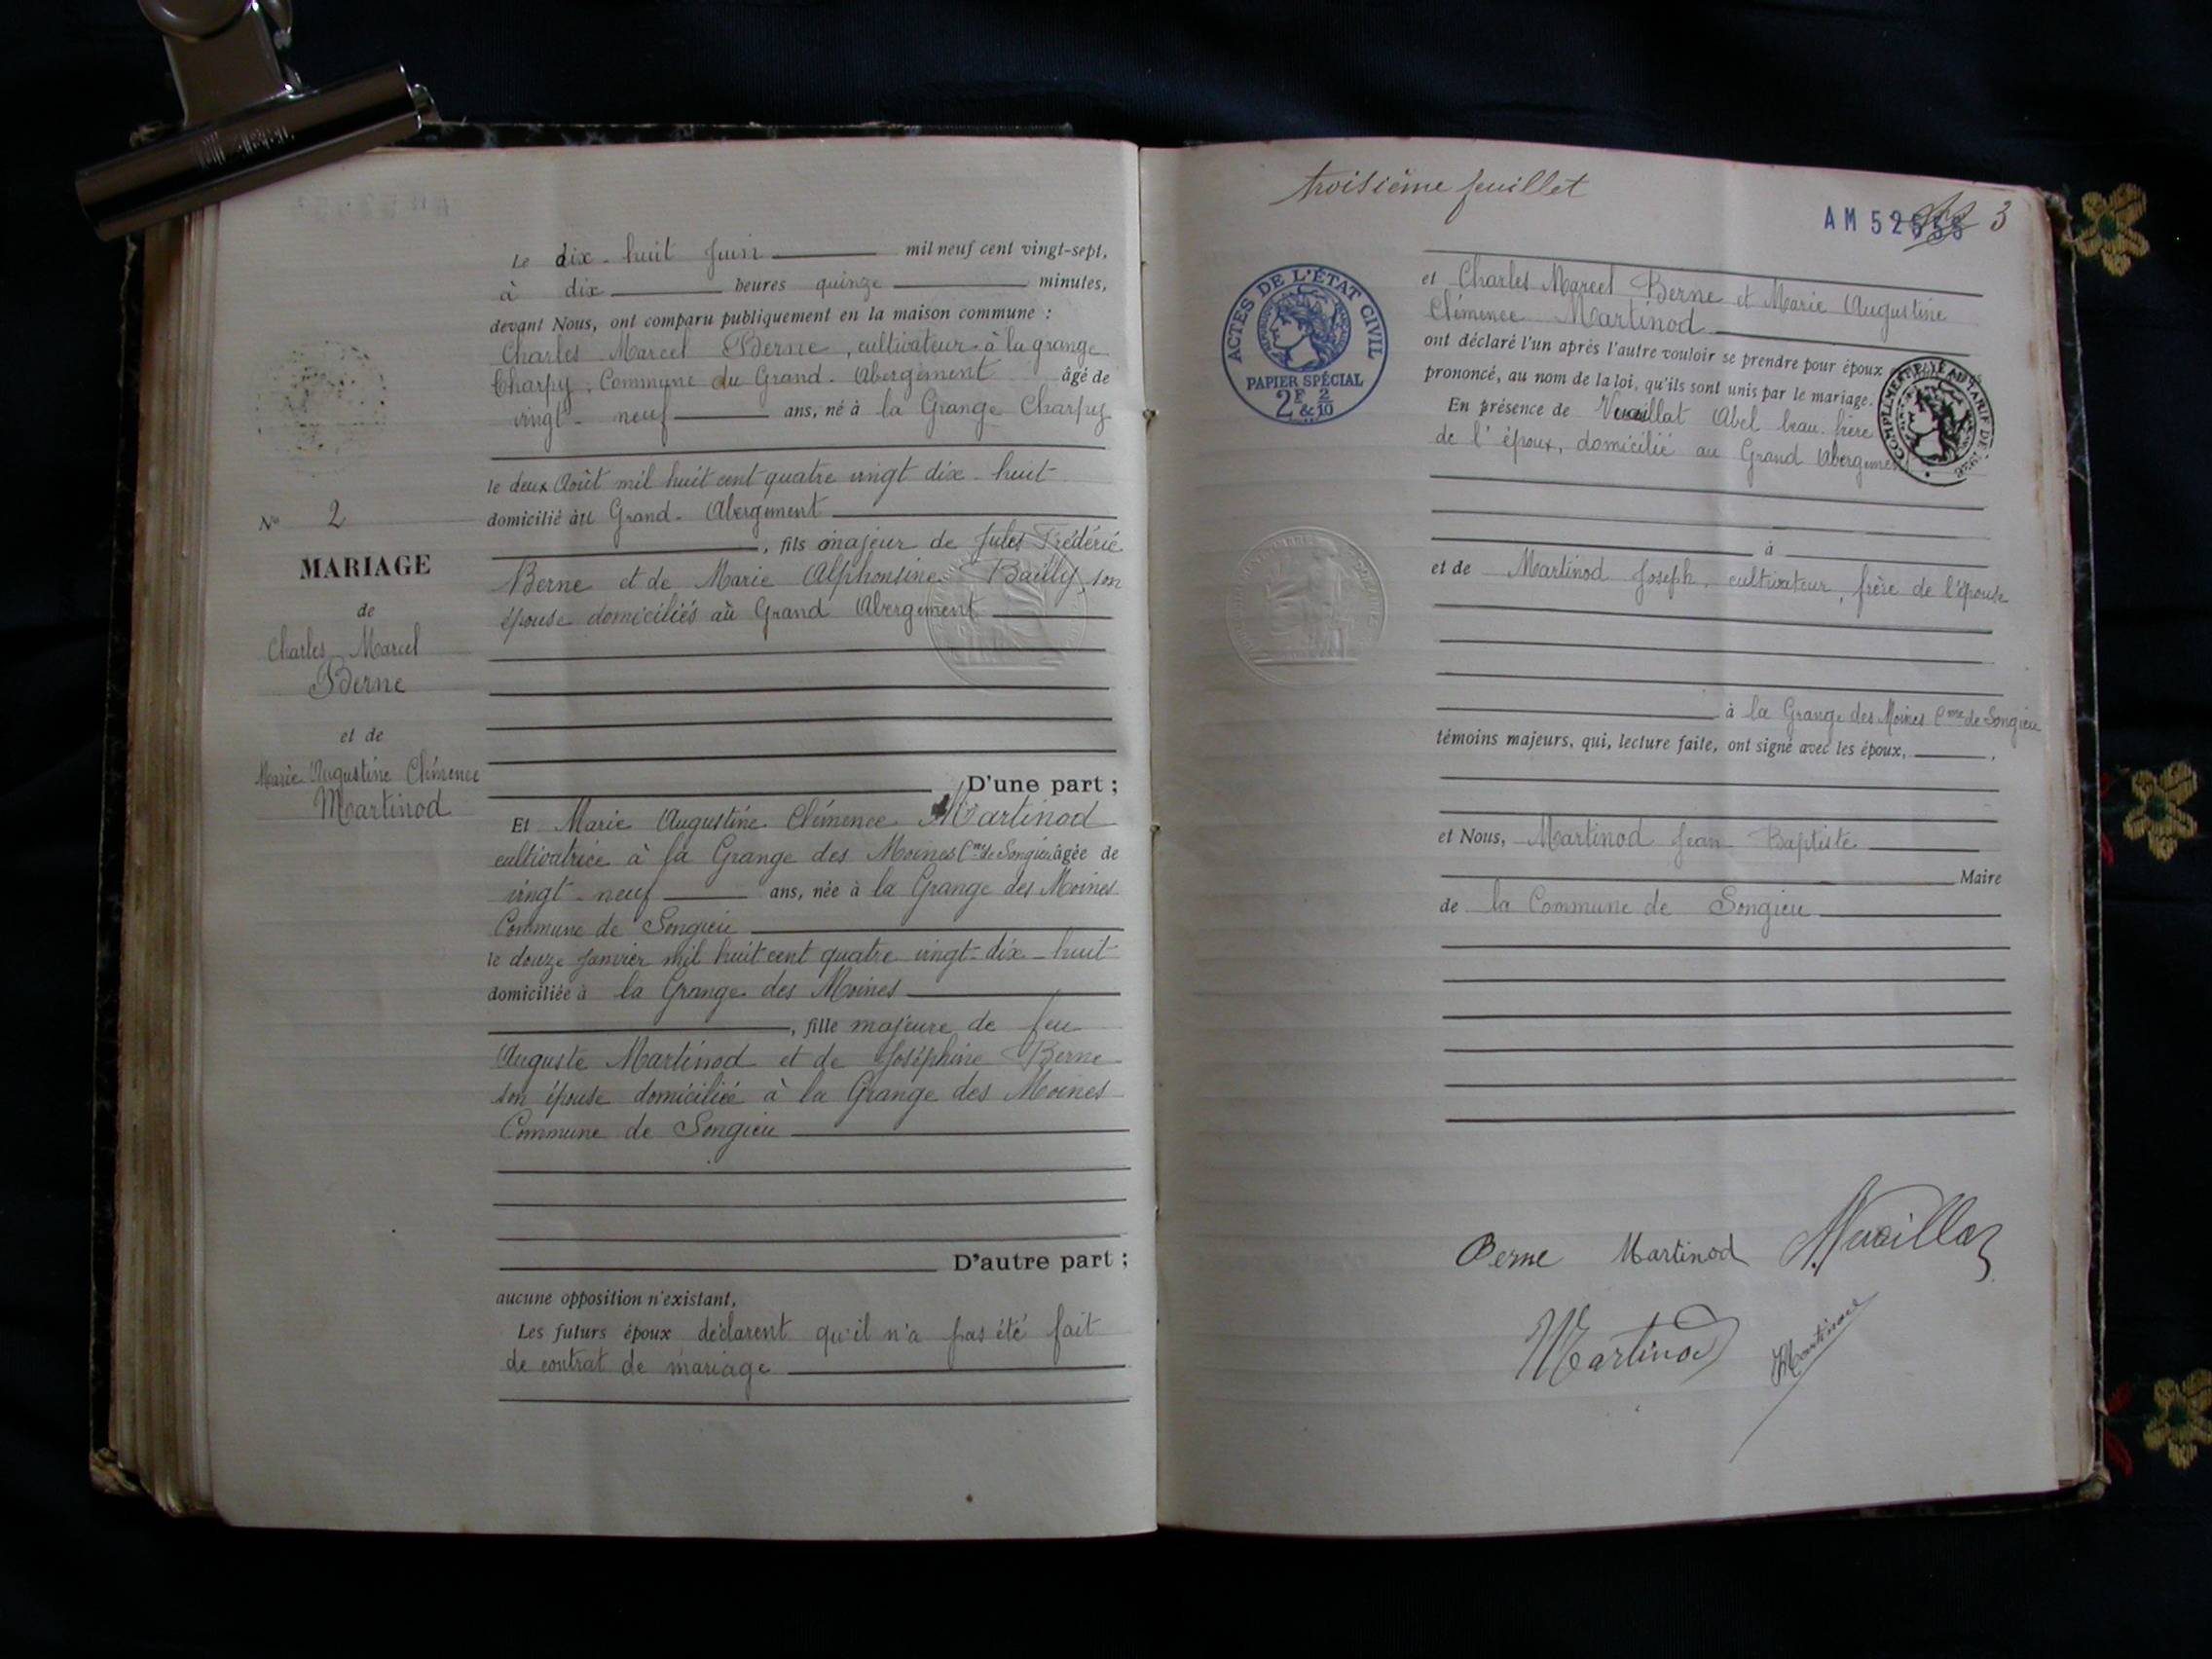 Le dix-huit Juin mil neuf cent vingt-sept,
à dix heures quinze minutes,
devant Nous, ont comparu publiquement en la maison commune :
Charles Marcel Berne, cultivateur à la grange
Charpy, Commune du Grand-Abergement âgé de
vingt-neuf ans, né à la Grange Charpy
le deux Août mil huit cent quatre vingt dix-huit
domicilié au Grand-Abergement
, fils majeur de Jules Frédéric
Berne et de Marie Alphonsine Bailly, son
épouse domiciliés au Grand Abergement
D'une part ;
Et Marie Augustine Clémence Martinod
cultivatrice à la Grange des Moines Cne de Songieu âgée de
vingt-neuf ans, née à la Grange des Moines
Commune de Songieu
le douze Janvier mil huit cent quatre vingt-dix-huit
domiciliée à la Grange des Moines
, fille majeure de feu
Auguste Martinod et de Joséphine Berne
son épouse domiciliée à la Grange des Moines
Commune de Songieu
D'autre part ;
aucune opposition n'existant,
Les futurs époux déclarent qu'il n'a pas été fait
de contrat de mariage
No 2
MARIAGE
de
Charles Marcel
Berne
et de
Marie Augustine Clémence
Martinod
troisième feuillet
AM 52 3
ACTES DE L'ÉTAT CIVIL
PAPIER SPÉCIAL
2F & 2/10
et Charles Marcel Berne et Marie Augustine
Clémence Martinod
ont déclaré l'un après l'autre vouloir se prendre pour époux
prononcé, au nom de la loi, qu'ils sont unis par le mariage.
COMPLÉMENT AU TARIF DE 1926
En présence de Abel beau-frère
de l'époux, domicilié au Grand Abergement
à
et de Martinod Joseph, cultivateur, frère de l'épouse
à la Grange des Moines Cne de Songieu
témoins majeurs, qui, lecture faite, ont signé avec les époux,
et Nous, Martinod Jean Baptiste
Maire
de la Commune de Songieu
Berne Martinod
Martinod Martinod